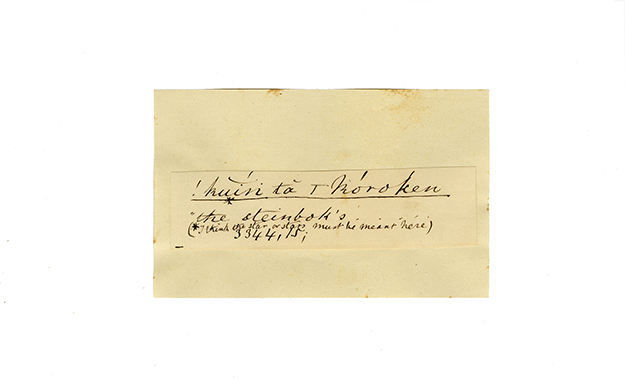 ! kúïsi tā ⊤ kóro ken
* 
"the steinbok's
(* I think the star, or stars must be meant here)
3344, 15;